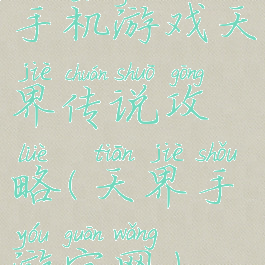 手机游戏天
jiè chuán shuō gōng
界传说攻
lüè tiān jiè shǒu
略(天界手
yóu guān wǎng
游官网)